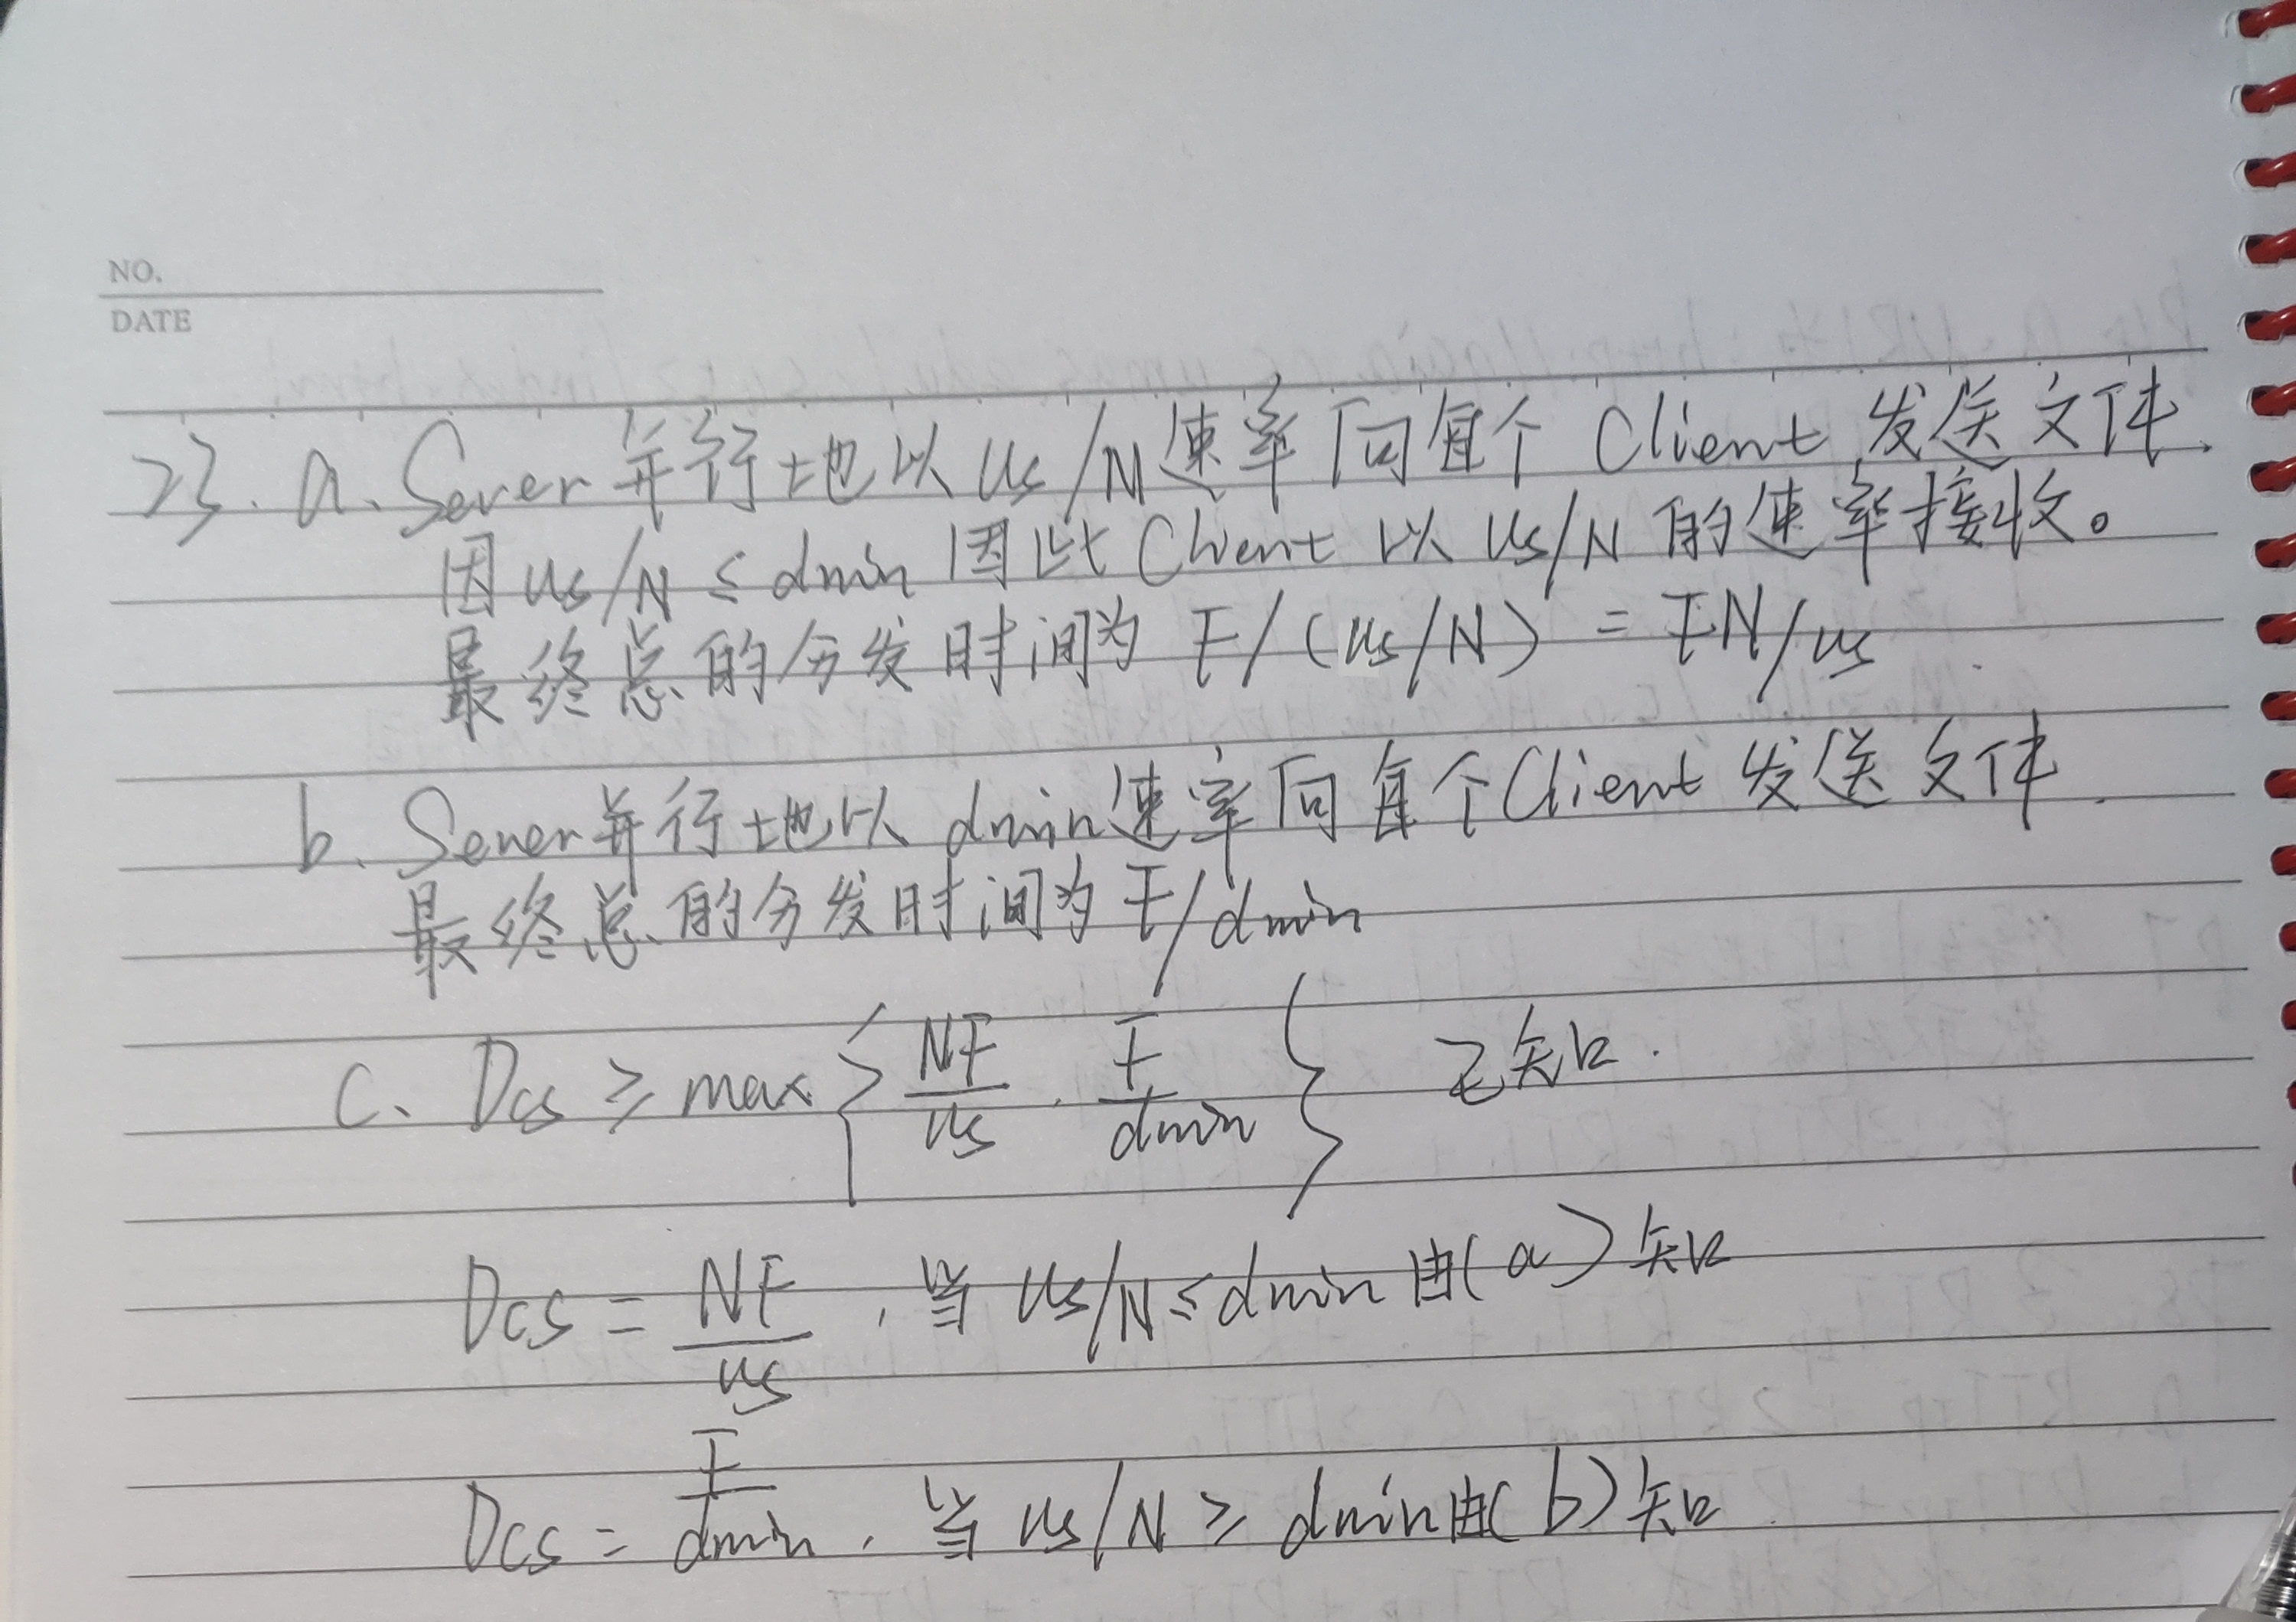 NO.
DATE
23. a. Sever并行地以us/N速率向每个Client发送文件.
因us/N≤dmin因此Client以us/N的速率接收。
最终总的分发时间为F/(us/N)=FN/us
b. Sever并行地以dmin速率向每个Client发送文件.
最终总的分发时间为F/dmin
c、Dcs ≥ max{NF/us, F/dmin} 已知.
Dcs = NF/us, 当us/N≤dmin由(a)知
Dcs = F/dmin, 当us/N≥dmin由(b)知.